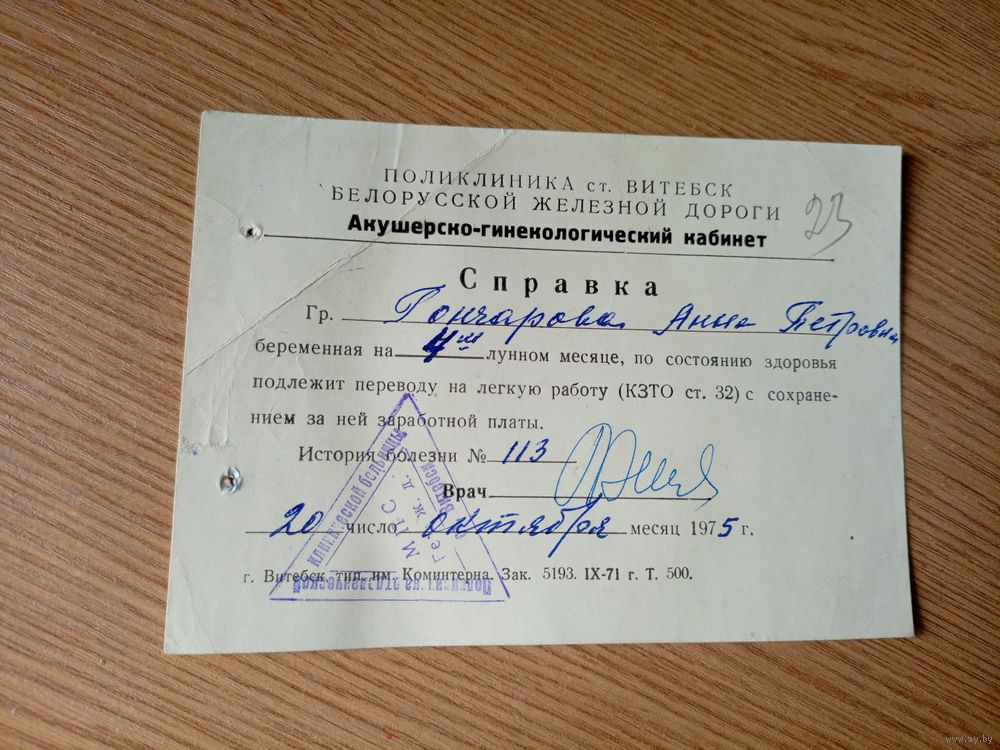 ПОЛИКЛИНИКА ст. ВИТЕБСК
БЕЛОРУССКОЙ ЖЕЛЕЗНОЙ ДОРОГИ
23
Акушерско-гинекологический кабинет
Справка
Гр. Гончарова Анна Петровна
беременная на 4ом лунном месяце, по состоянию здоровья
подлежит переводу на легкую работу (КЗТО ст. 32) с сохране-
нием за ней заработной платы.
История болезни № 113
Врач
20 число октября месяц 1975 г.
г. Витебск, тип. им. Коминтерна. Зак. 5193. IX-71 г. Т. 500.
клинической больницы
МПС
ж. д.
www.ay.by